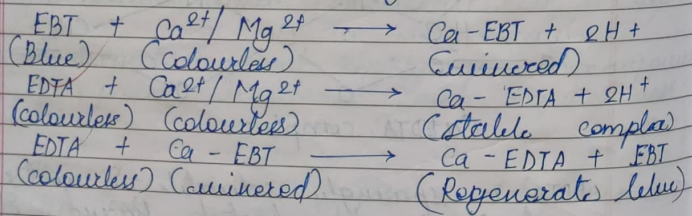 EBT + Ca2+/ Mg2+ → Ca-EBT + 2H+
(Blue) (Colourless) (winered)
EDTA + Ca2+/ Mg2+ → Ca- EDTA + 2H+
(colourless) (colourless) (Stable compla)
EDTA + Ca-EBT → Ca-EDTA + EBT
(colourless) (winered) (Regenerate blue)